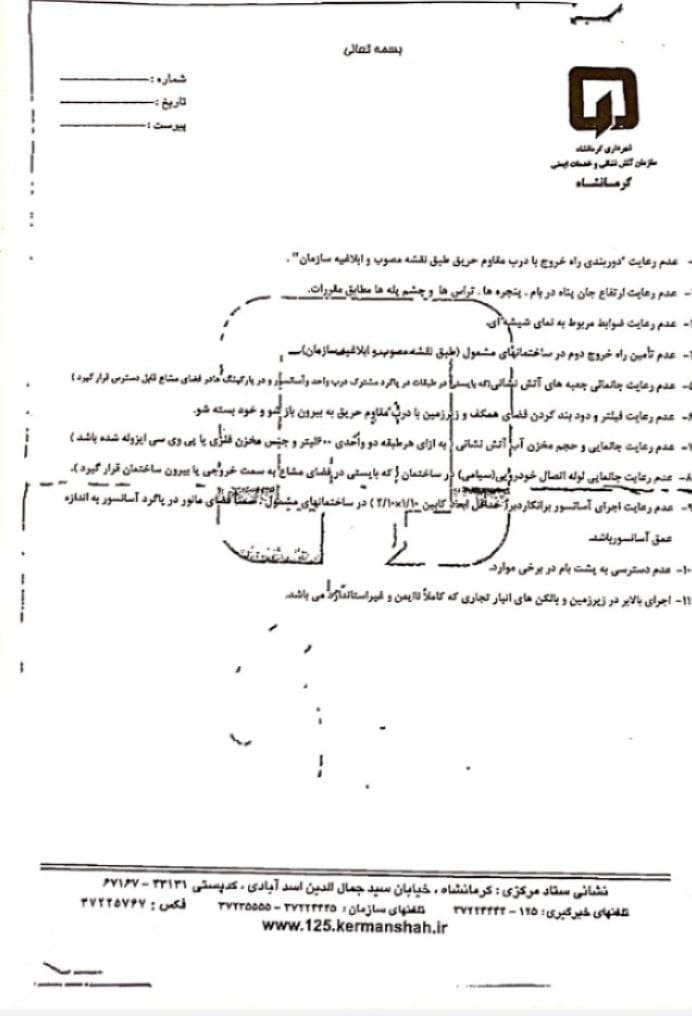 بسمه تعالی
شماره :
تاریخ :
پیوست :
شهرداری کرمانشاه
سازمان آتش نشانی و خدمات ایمنی
کرمانشاه
- عدم رعایت "دوربندی راه خروج با درب مقاوم حریق طبق نقشه مصوب و ابلاغیه سازمان".
- عدم رعایت ارتفاع جان پناه در بام . پنجره ها . تراس ها و چشم پله ها مطابق مقررات.
- عدم رعایت ضوابط مربوط به نمای شیشه ای.
- عدم تأمین راه خروج دوم در ساختمانهای مشمول (طبق نقشه مصوب و ابلاغیه سازمان)
- عدم رعایت جانمائی جعبه های آتش نشانی (که بایستی در طبقات در پاگرد مشترک درب واحد وآسانسور و در پارکینگ ها در فضای مشاع قابل دسترس قرار گیرد )
- عدم رعایت فیلتر و دود بند کردن فضای همکف و زیرزمین با درب مقاوم حریق به بیرون باز شو و خود بسته شو.
- عدم رعایت جانمایی و حجم مخزن آب آتش نشانی ( به ازای هرطبقه دو واحدی ۶۰۰لیتر و جنس مخزن فلزی یا پی وی سی ایزوله شده باشد )
۸- عدم رعایت جانمایی لوله اتصال خودرویی(سیامی) در ساختمان ( که بایستی در فضای مشاع به سمت خروجی یا بیرون ساختمان قرار گیرد ).
- عدم رعایت اجرای آسانسور برانکاردبر( حداقل ابعاد کابین ۲/۱۰×۱/۱۰ ) در ساختمانهای مشمول ، ضمنا فضای مانور در پاگرد آسانسور به اندازه
عمق آسانسورباشد.
۱۰- عدم دسترسی به پشت بام در برخی موارد.
۱۱- اجرای بالابر در زیرزمین و بالکن های انبار تجاری که کاملاً ناایمن و غیراستاندارد می باشد.
نشانی ستاد مرکزی : کرمانشاه ، خیابان سید جمال الدین اسد آبادی ، کدپستی ۳۳۱۳۱ – ۶۷۱۶۷
تلفنهای خبرگیری : ۱۲۵ – ۳۷۲۲۴۴۴۴ تلفنهای سازمان : ۳۷۲۲۴۴۴۵ – ۳۷۲۳۵۵۵۵ فکس : ۳۷۲۲۵۷۶۷
www.125.kermanshah.ir